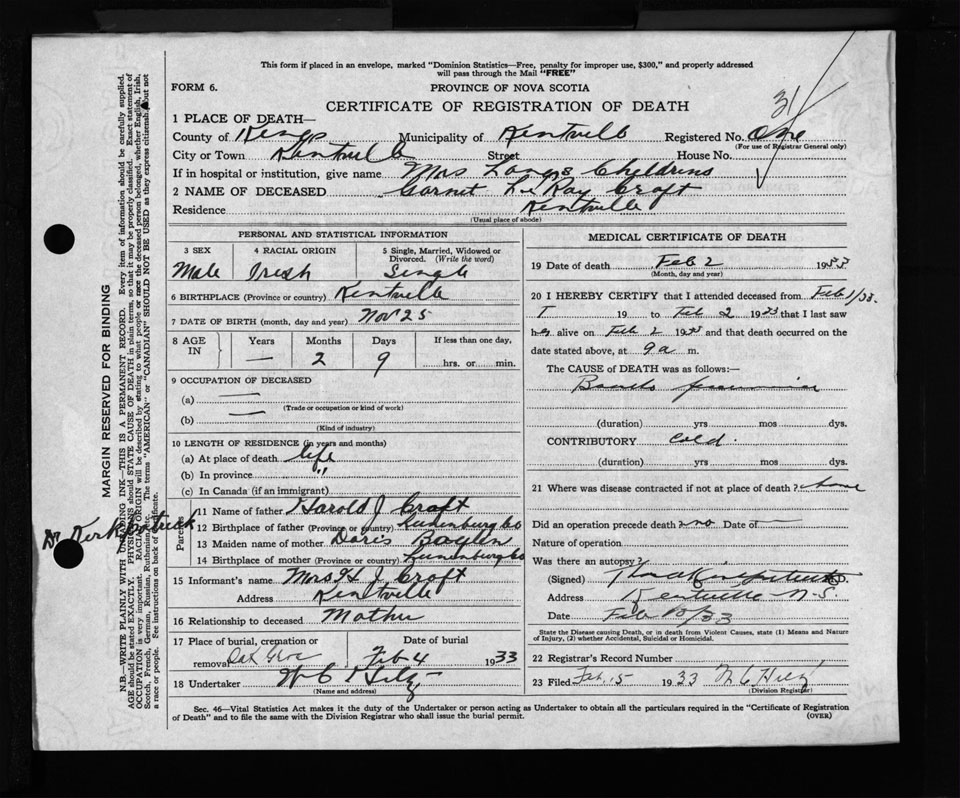 This form if placed in an envelope, marked "Dominion Statistics—Free, penalty for improper use, $300," and properly addressed
will pass through the Mail "FREE"
FORM 6.
PROVINCE OF NOVA SCOTIA
CERTIFICATE OF REGISTRATION OF DEATH
31
1 PLACE OF DEATH—
County of Kings Municipality of Kentville Registered No. One
(For use of Registrar General only)
City or Town Kentville Street House No.
If in hospital or institution, give name Mrs Childrins
2 NAME OF DECEASED Garnet Le Ray Croft
Residence Kentville
(Usual place of abode)
PERSONAL AND STATISTICAL INFORMATION
3 SEX 4 RACIAL ORIGIN 5 Single, Married, Widowed or Divorced. (Write the word)
Male Irish Single
6 BIRTHPLACE (Province or country) Kentville
7 DATE OF BIRTH (month, day and year) Nov 25
8 AGE IN Years Months Days If less than one day,
— 2 9 hrs. or min.
9 OCCUPATION OF DECEASED
(a) —
(Trade or occupation or kind of work)
(b) —
(Kind of industry)
10 LENGTH OF RESIDENCE (in years and months)
(a) At place of death life
(b) In province "
(c) In Canada (if an immigrant)
Parents
11 Name of father Harold J Croft
12 Birthplace of father (Province or country) Lunenburg Co
13 Maiden name of mother Doris
14 Birthplace of mother (Province or country) Lunenburg Co
15 Informant's name Mrs H J Croft
Address Kentville
16 Relationship to deceased Mother
17 Place of burial, cremation or removal Oak Grove Date of burial Feb 4 1933
18 Undertaker W C Hiltz
(Name and address)
MEDICAL CERTIFICATE OF DEATH
19 Date of death Feb 2 1933
(Month, day and year)
20 I HEREBY CERTIFY that I attended deceased from Feb 1/33.
19 to Feb 2 1933 that I last saw
h alive on Feb 2 1933 and that death occurred on the
date stated above, at 9 a m.
The CAUSE of DEATH was as follows:—
(duration) yrs mos dys.
CONTRIBUTORY Cold.
(duration) yrs mos dys.
21 Where was disease contracted if not at place of death? home
Did an operation precede death? no Date of —
Nature of operation
Was there an autopsy?
(Signed) M.D.
Address Kentville N-S
Date Feb /33
State the Disease causing Death, or in death from Violent Causes, state (1) Means and Nature
of Injury, (2) whether Accidental, Suicidal or Homicidal.
22 Registrar's Record Number
23 Filed Feb. 5 1933 W C Hiltz
(Division Registrar)
Sec. 46—Vital Statistics Act makes it the duty of the Undertaker or person acting as Undertaker to obtain all the particulars required in the "Certificate of Registration
of Death" and to file the same with the Division Registrar who shall issue the burial permit.
(OVER)
MARGIN RESERVED FOR BINDING
N.B.—WRITE PLAINLY WITH UNFADING INK—THIS IS A PERMANENT RECORD. Every item of information should be carefully supplied.
AGE should be stated EXACTLY. PHYSICIANS should STATE CAUSE OF DEATH in plain terms, so that it may be properly classified. Exact statement of
OCCUPATION is very important. RACIAL ORIGIN will be described by stating to what people or race the deceased person belonged, whether English, Irish,
Scotch, French, German, Russian, Ruthenian, etc. The terms "AMERICAN" or "CANADIAN" SHOULD NOT BE USED as they express citizenship but not
a race or people. See instructions on back of certificate.
Dr Kirkpatrick